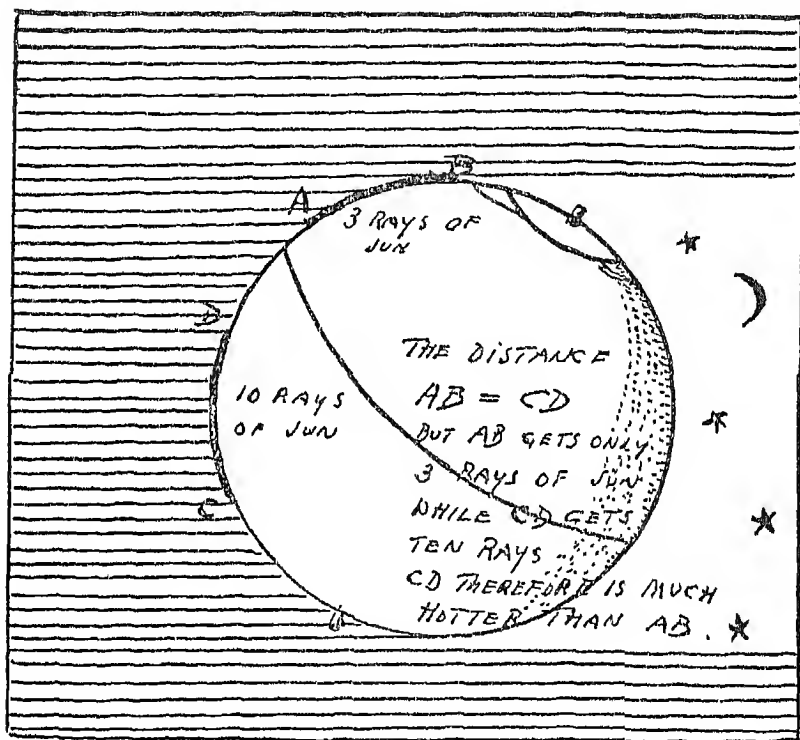 B
A
3 RAYS OF
SUN
D
10 RAYS
OF SUN
C
THE DISTANCE
AB = CD
BUT AB GETS ONLY
3 RAYS OF SUN
WHILE CD GETS
TEN RAYS
CD THEREFORE IS MUCH
HOTTER THAN AB.